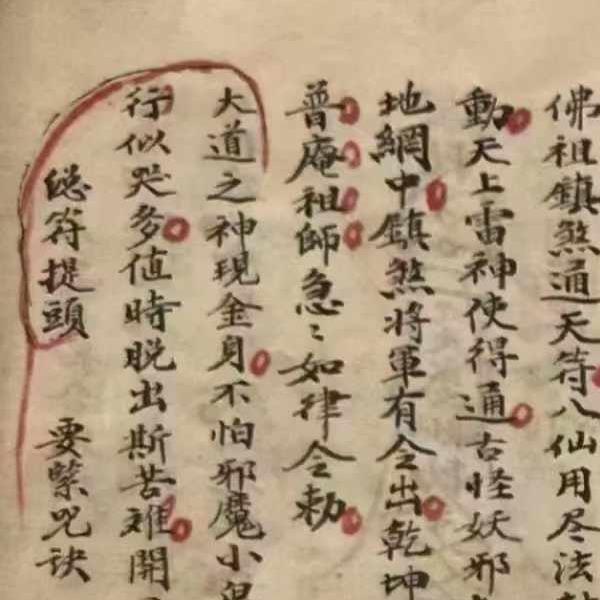 佛祖鎮煞通天符八仙用尽法
動天上雷神使得通古怪妖邪
地網中鎮煞将軍有令出乾坤
普庵祖師急〻如律令勅
大道之神現金身不怕邪魔小鬼
行似哭多值時脱出斯苦难開
総符提頭 要紧咒诀